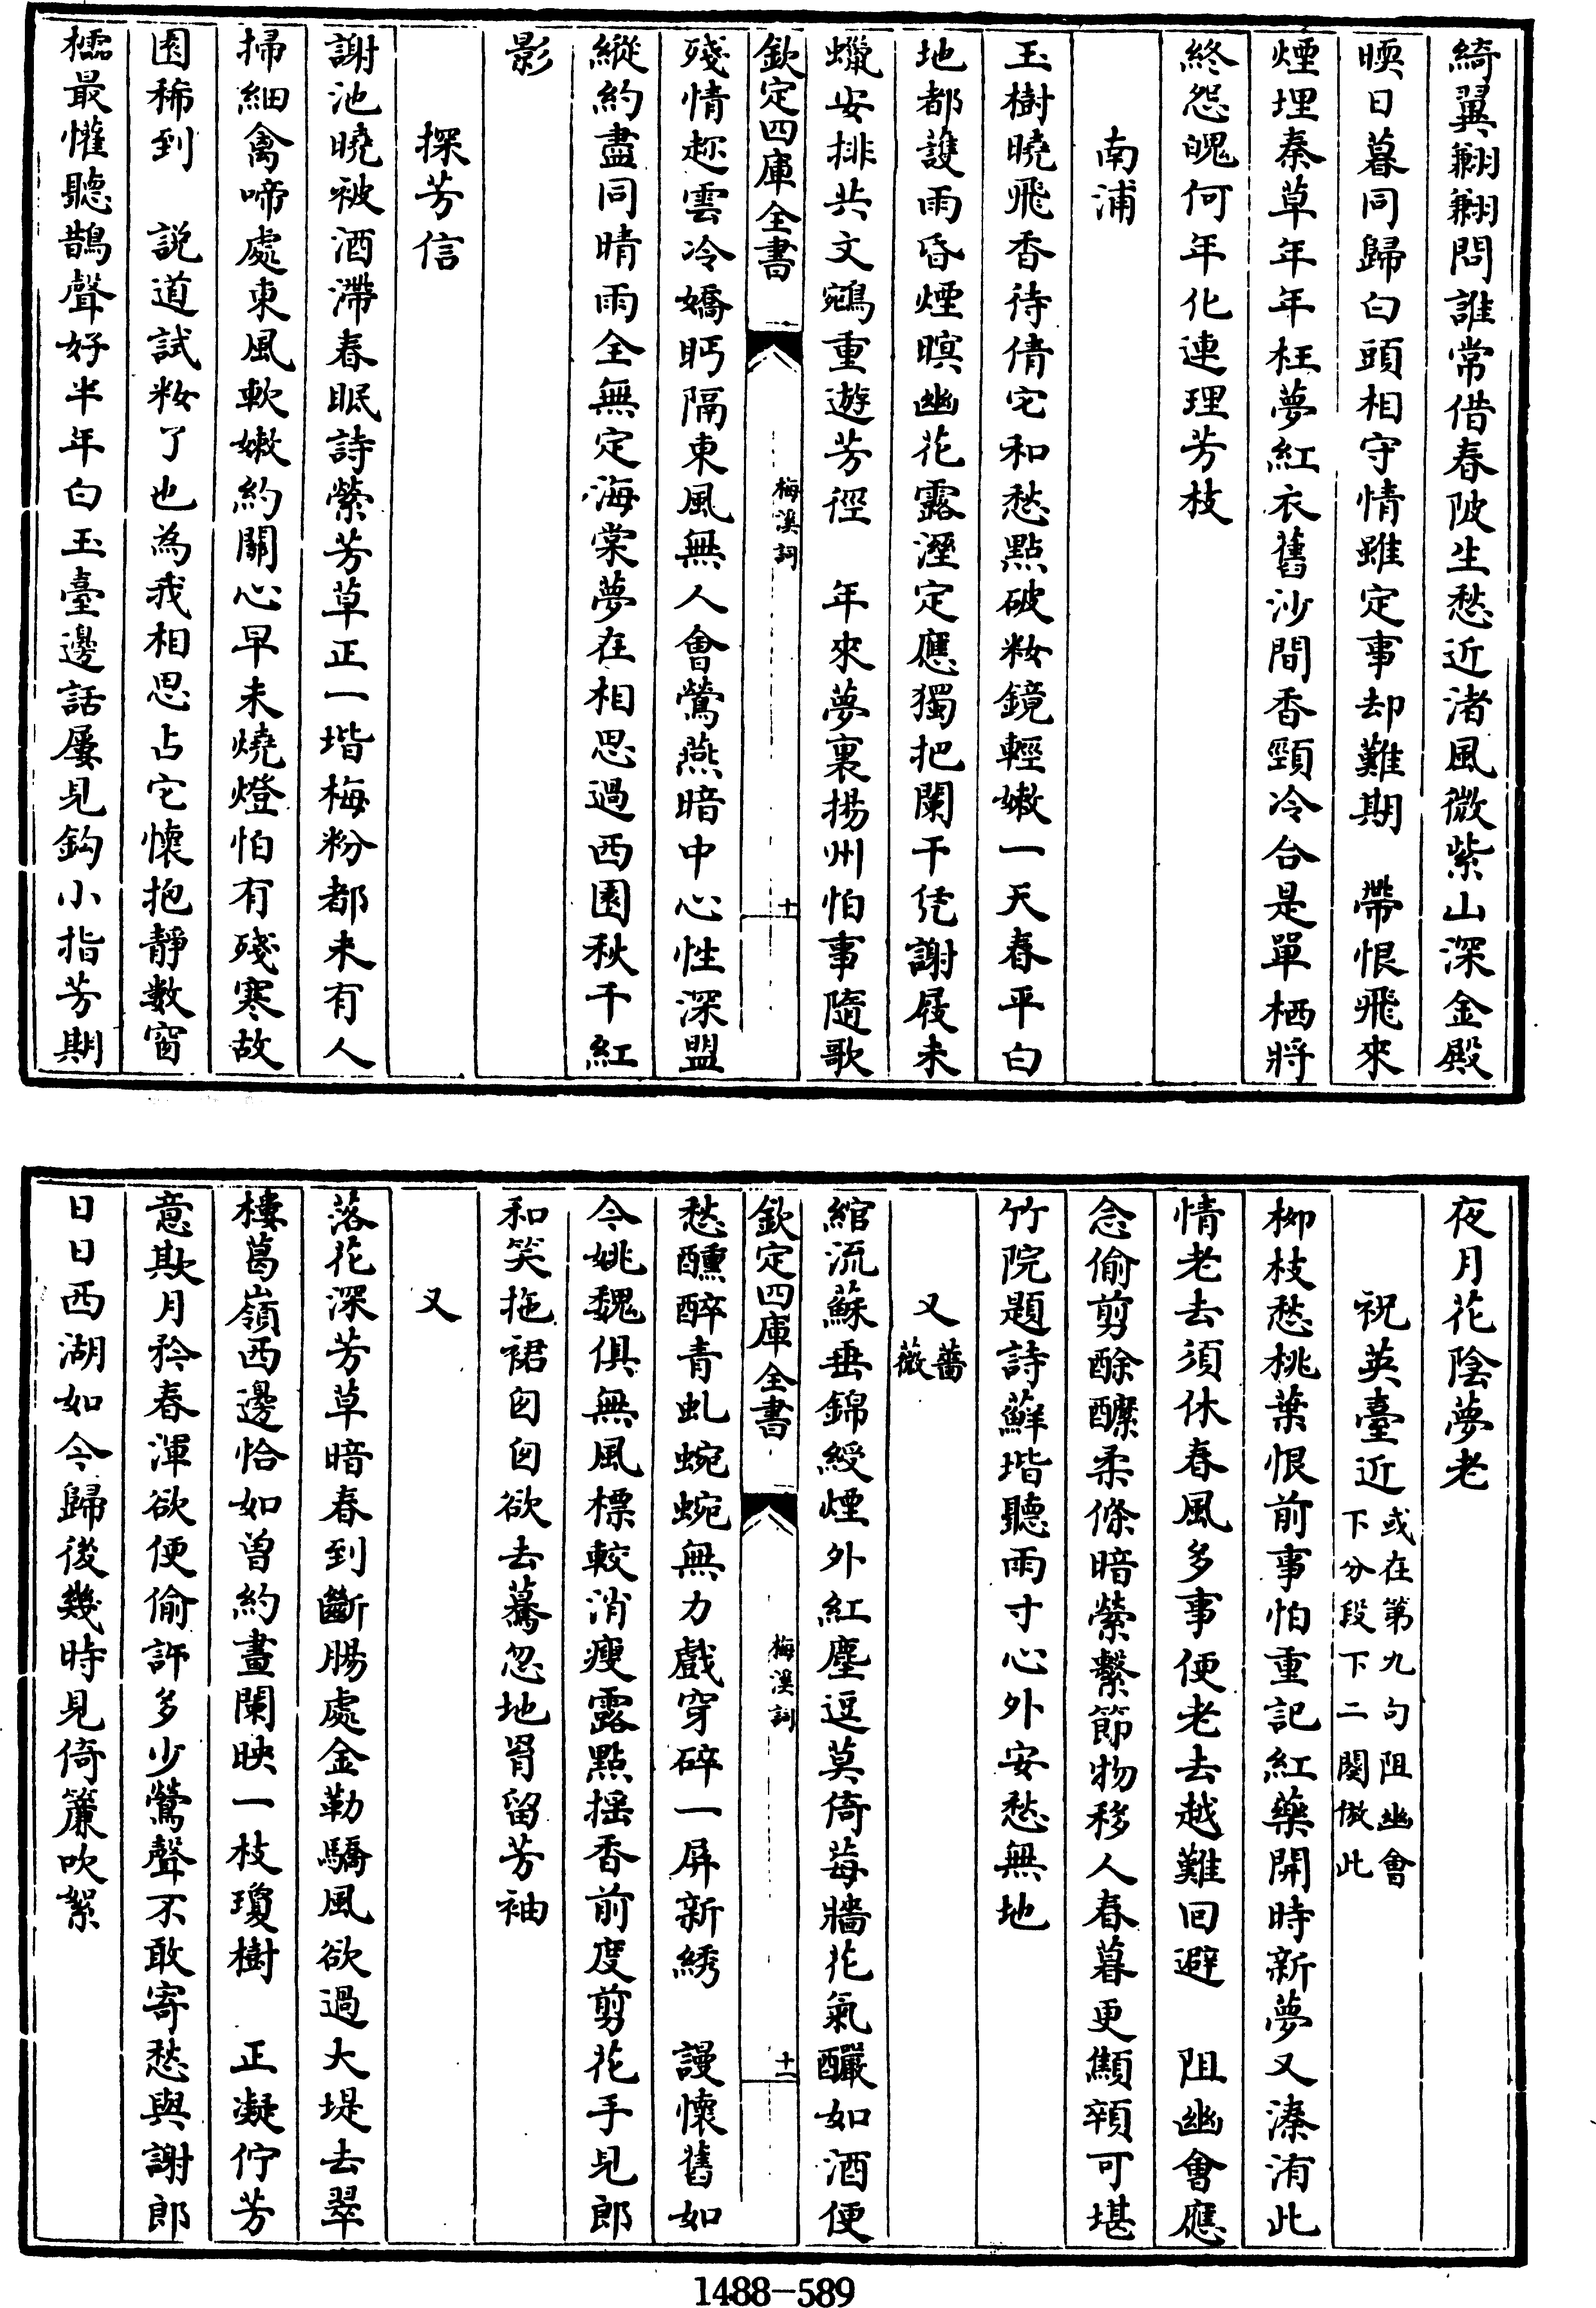 綺翼翽翽問誰常借春陂生愁近渚風微紫山深金殿
暝日暮同歸白頭相守情雖定事却難期　帶恨飛來
煙埋秦草年年枉夢紅衣舊沙間香頸冷合是單栖將
終怨魂何年化連理芳枝
南浦
玉樹曉飛香待倩它和愁點破妝鏡輕嫩一天春平白
地都護雨昏煙暝幽花露溼定應獨把闌干凭謝屐未
蠟安排共文鵷重遊芳徑　年來夢裏揚州怕事隨歌
欽定四庫全書
梅溪詞
十
殘情趂雲冷嬌眄隔東風無人會鶯燕暗中心性深盟
縱約盡同晴雨全無定海棠夢在相思過西園秋千紅
影
探芳信
謝池曉被酒滯春眠詩縈芳草正一堦梅粉都未有人
掃細禽啼處東風軟嫩約關心早未燒燈怕有殘寒故
園稀到　説道試妝了也為我相思占它懷抱靜數窗
櫺最懽聽鵲聲好半年白玉臺邊話屢見鈎小指芳期
夜月花陰夢老
祝英臺近或在第九句阻幽會下分段下二闋倣此
柳枝愁桃葉恨前事怕重記紅藥開時新夢又溱洧此
情老去須休春風多事便老去越難回避　阻幽會應
念偷剪酴醾柔條暗縈繫節物移人春暮更顦顇可堪
竹院題詩蘚堦聽雨寸心外安愁無地
又薔薇
綰流蘇垂錦綬煙外紅塵逗莫倚莓牆花氣釅如酒便
欽定四庫全書
梅溪詞
十一
愁醺醉青虬蜿蜿無力戲穿碎一屏新綉　謾懷舊如
今姚魏俱無風標較消瘦露點揺香前度剪花手見郎
和笑拖裙匆匆欲去驀忽地罥留芳袖
又
落花深芳草暗春到斷腸處金勒驕風欲過大堤去翠
樓葛嶺西邊恰如曾約畫闌映一枝瓊樹　正凝佇芳
意欺月矜春渾欲便偷許多少鶯聲不敢寄愁與謝郎
日日西湖如今歸後幾時見倚簾吹絮
1488-589